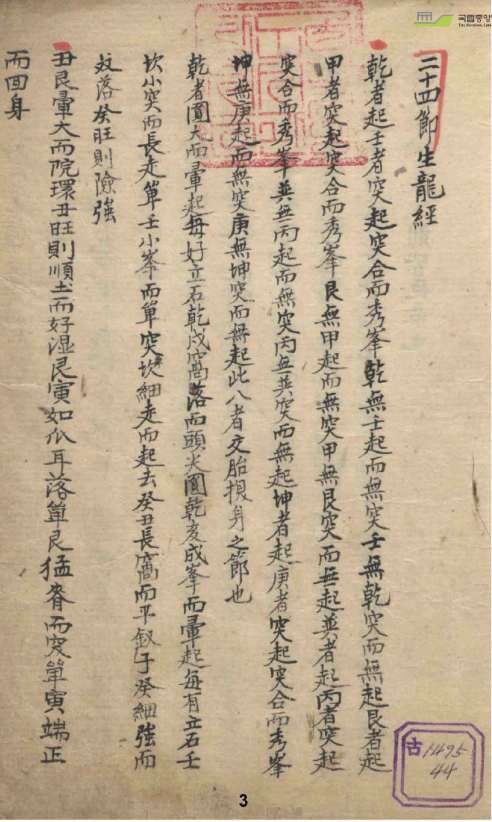 二十四節生龍經
乾者起壬者突起突合而秀峯乾無壬起而無突壬無乾突而無起艮者起
甲者突起突合而秀峯艮無甲起而無突甲無艮突而無起巽者起丙者突起
突合而秀峯巽無丙起而無突丙無巽突而無起坤者起庚者突起突合而秀峯
坤無庚起而無突庚無坤突而無起此八者交胎損身之節也
乾者圓大而暈起每好立石乾戌窩落而頭大圓乾亥成峯而暈起每有立石壬
坎小突而長走單壬小峯而單突坎細走而起去癸丑長窩而平釵子癸細強而
落癸旺則險強
丑艮暈大而院環丑旺則順土而好湿艮寅如瓜耳落單艮猛脊而突單寅端正
而回身
古1495
44
3